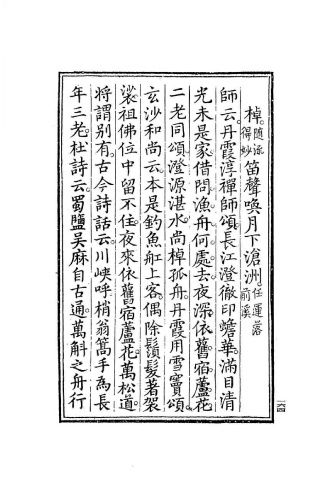 棹隨流得妙笛聲喚月下滄洲任運落前溪
師云丹霞淳禪師頌長江澄徹印蟾華滿目清
光未是家借問漁舟何處去夜深依舊宿蘆花
二老同頌澄源湛水尚棹孤舟丹霞用雪竇頌
玄沙和尚云本是釣魚舡上客偶除鬚髮著袈
裟祖佛位中留不住夜來依舊宿蘆花萬松道
將謂別有古今詩話云川峽呼梢翁篙手為長
年三老杜詩云蜀鹽吳麻自古通萬斛之舟行
一六四